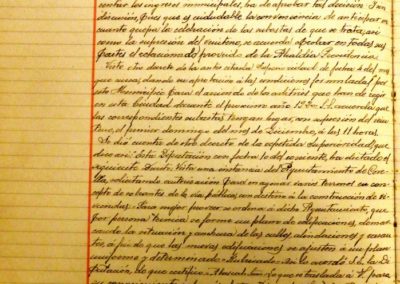 sentar los ingresos municipales, ha de aprobar tal decisión. Sin
discusión, pues que es indudable la conveniencia de anticipar en
cuanto quepa la celebración de las subastas de que se trata, así
como la supresión del se acuerda aprobar en todas sus
partes el relacionado proceder de la Alcaldía
Visto otro decreto de la autoridad de fecha del
que cursa, dando su aprobación a las condiciones formuladas por
este Municipio para el arriendo de los arbitrios que han de regir
en esta Ciudad durante el próximo año se acuerda que
las correspondientes subastas tengan lugar, con supresión del
el primer domingo del mes de Diciembre, a las 11 horas.
Se dió cuenta de otro decreto de la repetida superioridad, que
dice así: Esta Diputación con fecha 10 del corriente, ha dictado el
siguiente Decreto: Vista una instancia del Ayuntamiento de
solicitando autorización para enajenar varios terrenos en con-
cepto de sobrantes de la vía pública, con destino a la construcción de vi-
viendas: Para mejor proveer a dicho Ayuntamiento, que
por persona técnica se forme un plano de edificaciones,
de la situación y anchura de las calles, alineaciones y
a fin de que las nuevas edificaciones se ajusten a un plan
uniforme y determinado. Así lo acordó S.E. la Di-
putación, de que certifico. Lo que se traslada a V. para